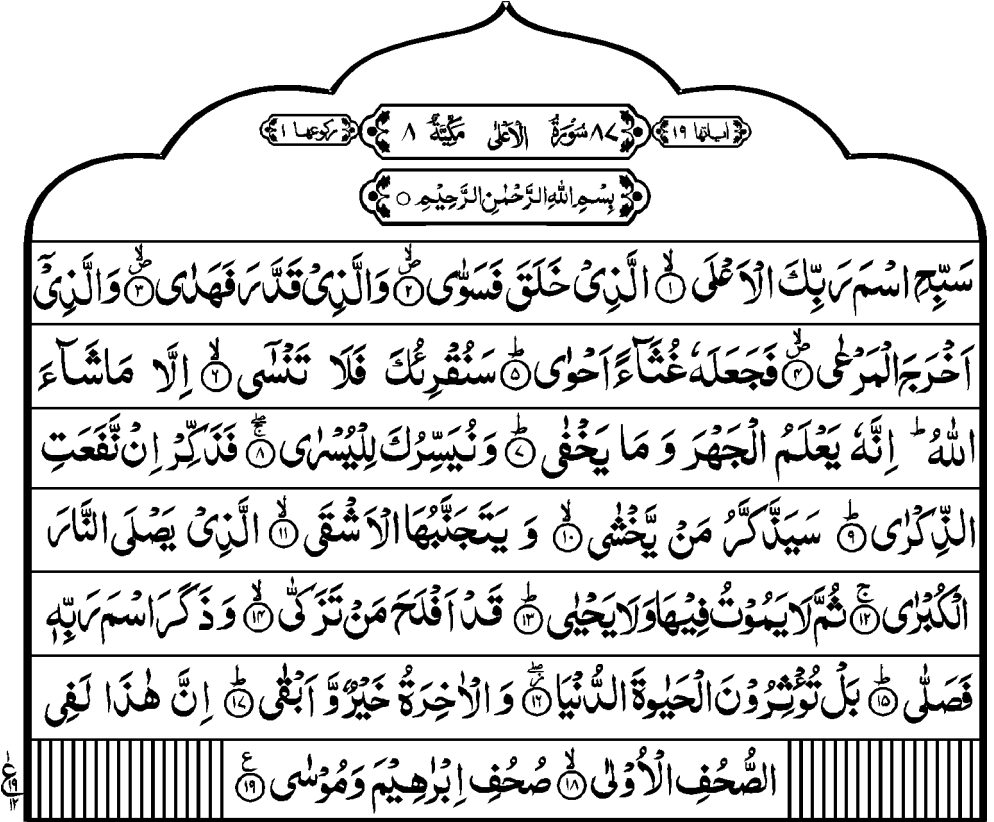 اٰیاتها ۱۹ ۸۷ سُوْرَةُ الْاَعْلٰی مَكِّیَّةٌ ۸ ركوعها ۱
بِسْمِ اللّٰهِ الرَّحْمٰنِ الرَّحِیْمِ ○
سَبِّحِ اسْمَ رَبِّكَ الْاَعْلَی ۙ﴿۱﴾ الَّذِیْ خَلَقَ فَسَوّٰی ۪ۙ﴿۲﴾ وَالَّذِیْ قَدَّرَ فَهَدٰی ۪ۙ﴿۳﴾ وَالَّذِیْۤ
اَخْرَجَ الْمَرْعٰی ۪ۙ﴿۴﴾ فَجَعَلَهٗ غُثَآءً اَحْوٰی ؕ﴿۵﴾ سَنُقْرِئُكَ فَلَا تَنْسٰۤی ۙ﴿۶﴾ اِلَّا مَاشَآءَ
اللّٰهُ ؕ اِنَّهٗ یَعْلَمُ الْجَهْرَ وَ مَا یَخْفٰی ؕ﴿۷﴾ وَنُیَسِّرُكَ لِلْیُسْرٰی ۚۖ﴿۸﴾ فَذَكِّرْ اِنْ نَّفَعَتِ
الذِّكْرٰی ؕ﴿۹﴾ سَیَذَّكَّرُ مَنْ یَّخْشٰی ۙ﴿۱۰﴾ وَ یَتَجَنَّبُهَا الْاَشْقَی ۙ﴿۱۱﴾ الَّذِیْ یَصْلَی النَّارَ
الْكُبْرٰی ۚ﴿۱۲﴾ ثُمَّ لَا یَمُوْتُ فِیْهَا وَلَا یَحْیٰی ؕ﴿۱۳﴾ قَدْ اَفْلَحَ مَنْ تَزَكّٰی ۙ﴿۱۴﴾ وَ ذَكَرَ اسْمَ رَبِّهٖ
فَصَلّٰی ؕ﴿۱۵﴾ بَلْ تُؤْثِرُوْنَ الْحَیٰوةَ الدُّنْیَا ۫ۖ﴿۱۶﴾ وَ الْاٰخِرَةُ خَیْرٌ وَّ اَبْقٰی ؕ﴿۱۷﴾ اِنَّ هٰذَا لَفِی
الصُّحُفِ الْاُوْلٰی ۙ﴿۱۸﴾ صُحُفِ اِبْرٰهِیْمَ وَمُوْسٰی ﴿۱۹﴾ ع
ع ۱۹ ۱۲